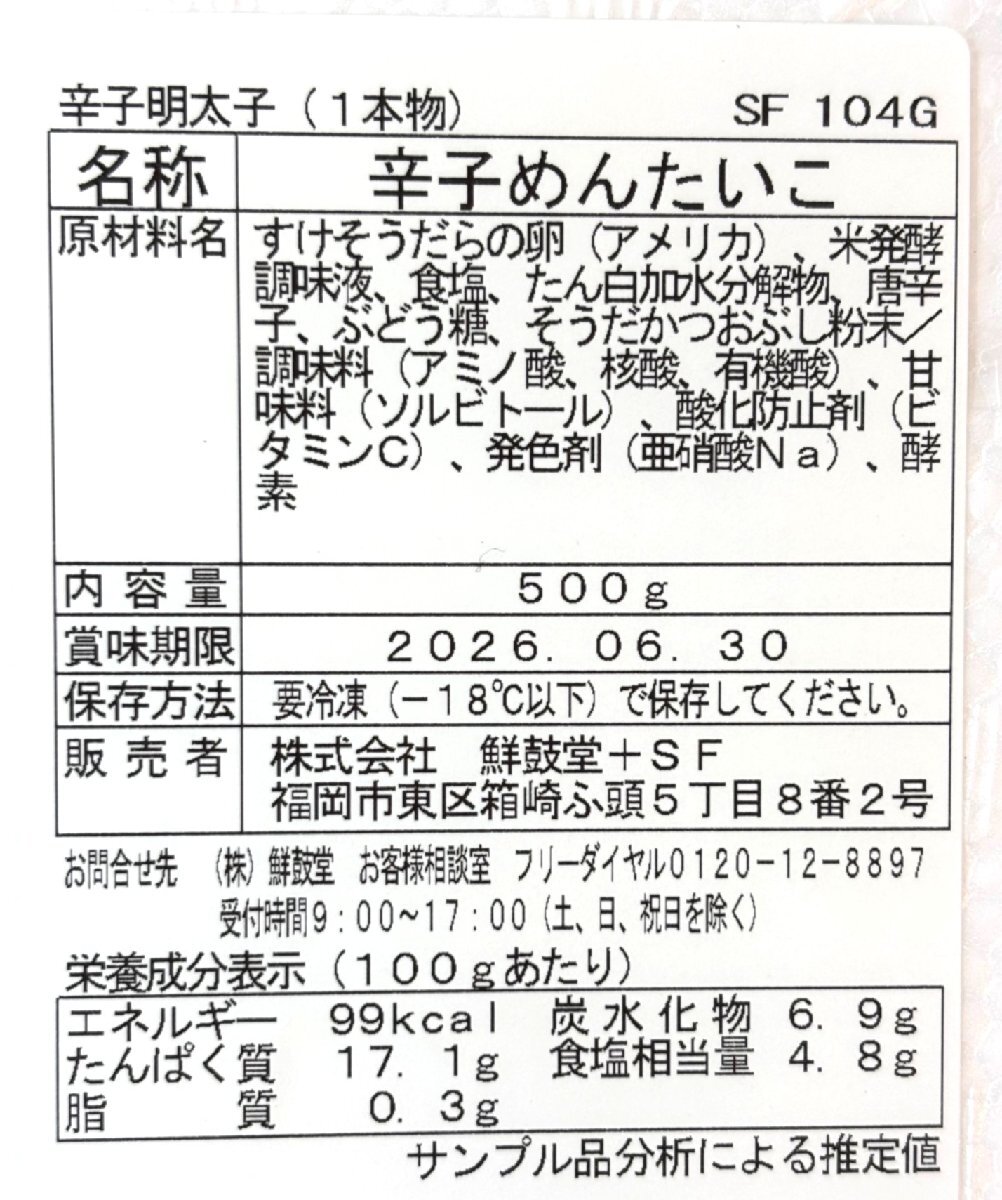 辛子明太子（１本物） SF 104G
名称 辛子めんたいこ
原材料名 すけそうだらの卵（アメリカ）、米発酵
調味液、食塩、たん白加水分解物、唐辛
子、ぶどう糖、そうだかつおぶし粉末／
調味料（アミノ酸、核酸、有機酸）、甘
味料（ソルビトール）、酸化防止剤（ビ
タミンＣ）、発色剤（亜硝酸Ｎａ）、酵
素
内容量 ５００ｇ
賞味期限 ２０２６．０６．３０
保存方法 要冷凍（－１８℃以下）で保存してください。
販売者 株式会社　鮮鼓堂＋ＳＦ
福岡市東区箱崎ふ頭５丁目８番２号
お問合せ先　（株）鮮鼓堂　お客様相談室　フリーダイヤル０１２０－１２－８８９７
受付時間９：００～１７：００（土、日、祝日を除く）
栄養成分表示（１００ｇあたり）
エネルギー 99kcal 炭水化物 6．9g
たんぱく質 17．1g 食塩相当量 4．8g
脂質 0．3g
サンプル品分析による推定値